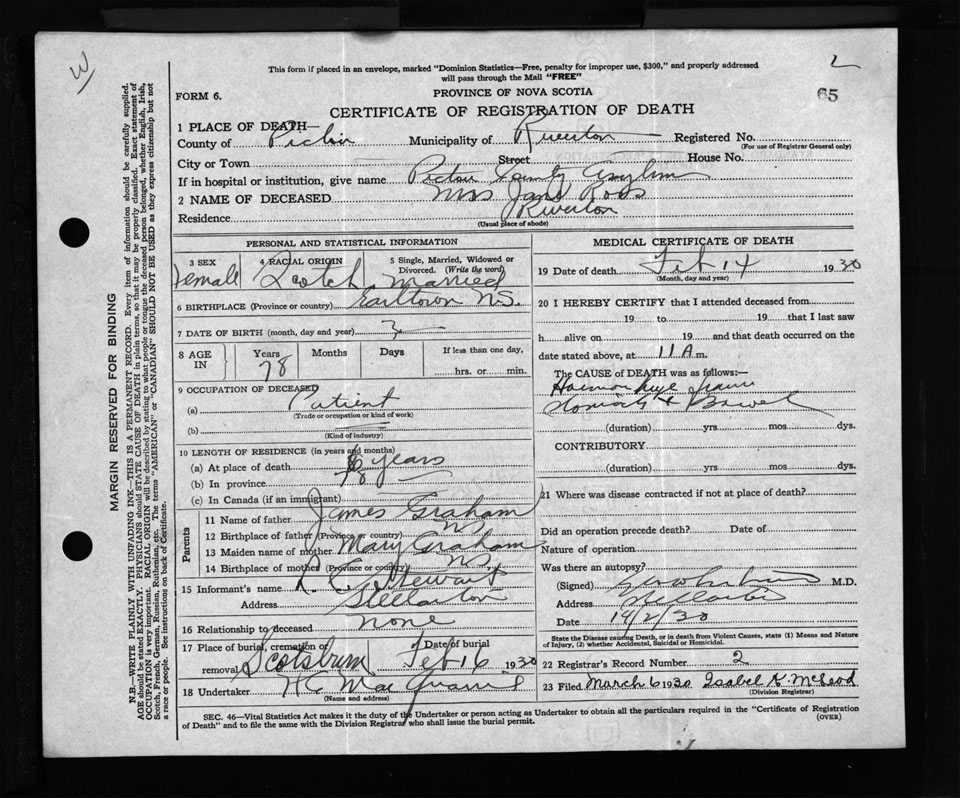 W
2
This form if placed in an envelope, marked "Dominion Statistics—Free, penalty for improper use, $300," and properly addressed
will pass through the Mail "FREE"
FORM 6.
PROVINCE OF NOVA SCOTIA
65
CERTIFICATE OF REGISTRATION OF DEATH
1 PLACE OF DEATH—
County of Pictou Municipality of Riverton Registered No.
(For use of Registrar General only)
City or Town Street House No.
If in hospital or institution, give name Pictou County Asylum
2 NAME OF DECEASED Mrs Jane Ross
Residence Riverton
(Usual place of abode)
PERSONAL AND STATISTICAL INFORMATION
3 SEX Female
4 RACIAL ORIGIN Scotch
5 Single, Married, Widowed or Divorced. (Write the word) Married
6 BIRTHPLACE (Province or country) Earltown N.S.
7 DATE OF BIRTH (month, day and year) ?
8 AGE IN Years 78 Months Days If less than one day, hrs. or min.
9 OCCUPATION OF DECEASED
(a) Patient
(Trade or occupation or kind of work)
(b)
(Kind of industry)
10 LENGTH OF RESIDENCE (in years and months)
(a) At place of death years
(b) In province 78
(c) In Canada (if an immigrant)
Parents
11 Name of father James Graham
12 Birthplace of father (Province or country) N.S.
13 Maiden name of mother Mary Graham
14 Birthplace of mother (Province or country) N.S.
15 Informant's name Stewart
Address Stellarton
16 Relationship to deceased none
17 Place of burial, cremation or removal Scotsburn Date of burial Feb 16 1930
18 Undertaker H C MacQuarrie
(Name and address)
MEDICAL CERTIFICATE OF DEATH
19 Date of death Feb 14 1930
(Month, day and year)
20 I HEREBY CERTIFY that I attended deceased from
19 to 19 that I last saw
h alive on 19 and that death occurred on the
date stated above, at 11 A m.
The CAUSE of DEATH was as follows:—
Haemorrhage from
Stomach & Bowel
(duration) yrs mos dys.
CONTRIBUTORY
(duration) yrs. mos. dys.
21 Where was disease contracted if not at place of death?
Did an operation precede death? Date of
Nature of operation
Was there an autopsy?
(Signed) M.D.
Address Stellarton
Date 14/2/30
State the Disease causing Death, or in death from Violent Causes, state (1) Means and Nature
of Injury, (2) whether Accidental, Suicidal or Homicidal.
22 Registrar's Record Number 2
23 Filed March 6 1930 Isabel K. McLeod
(Division Registrar)
SEC. 46—Vital Statistics Act makes it the duty of the Undertaker or person acting as Undertaker to obtain all the particulars required in the "Certificate of Registration
of Death" and to file the same with the Division Registrar who shall issue the burial permit.
(OVER)
MARGIN RESERVED FOR BINDING
N.B.—WRITE PLAINLY WITH UNFADING INK—THIS IS A PERMANENT RECORD. Every item of information should be carefully supplied.
AGE should be stated EXACTLY. PHYSICIANS should STATE CAUSE OF DEATH in plain terms, so that it may be properly classified. Exact statement of
OCCUPATION is very important. RACIAL ORIGIN will be described by stating to what people or tongue the deceased person belonged, whether English, Irish,
Scotch, French, German, Russian, Ruthenian, etc. The terms "AMERICAN" or "CANADIAN" SHOULD NOT BE USED as they express citizenship but not
a race or people. See instructions on back of Certificate.